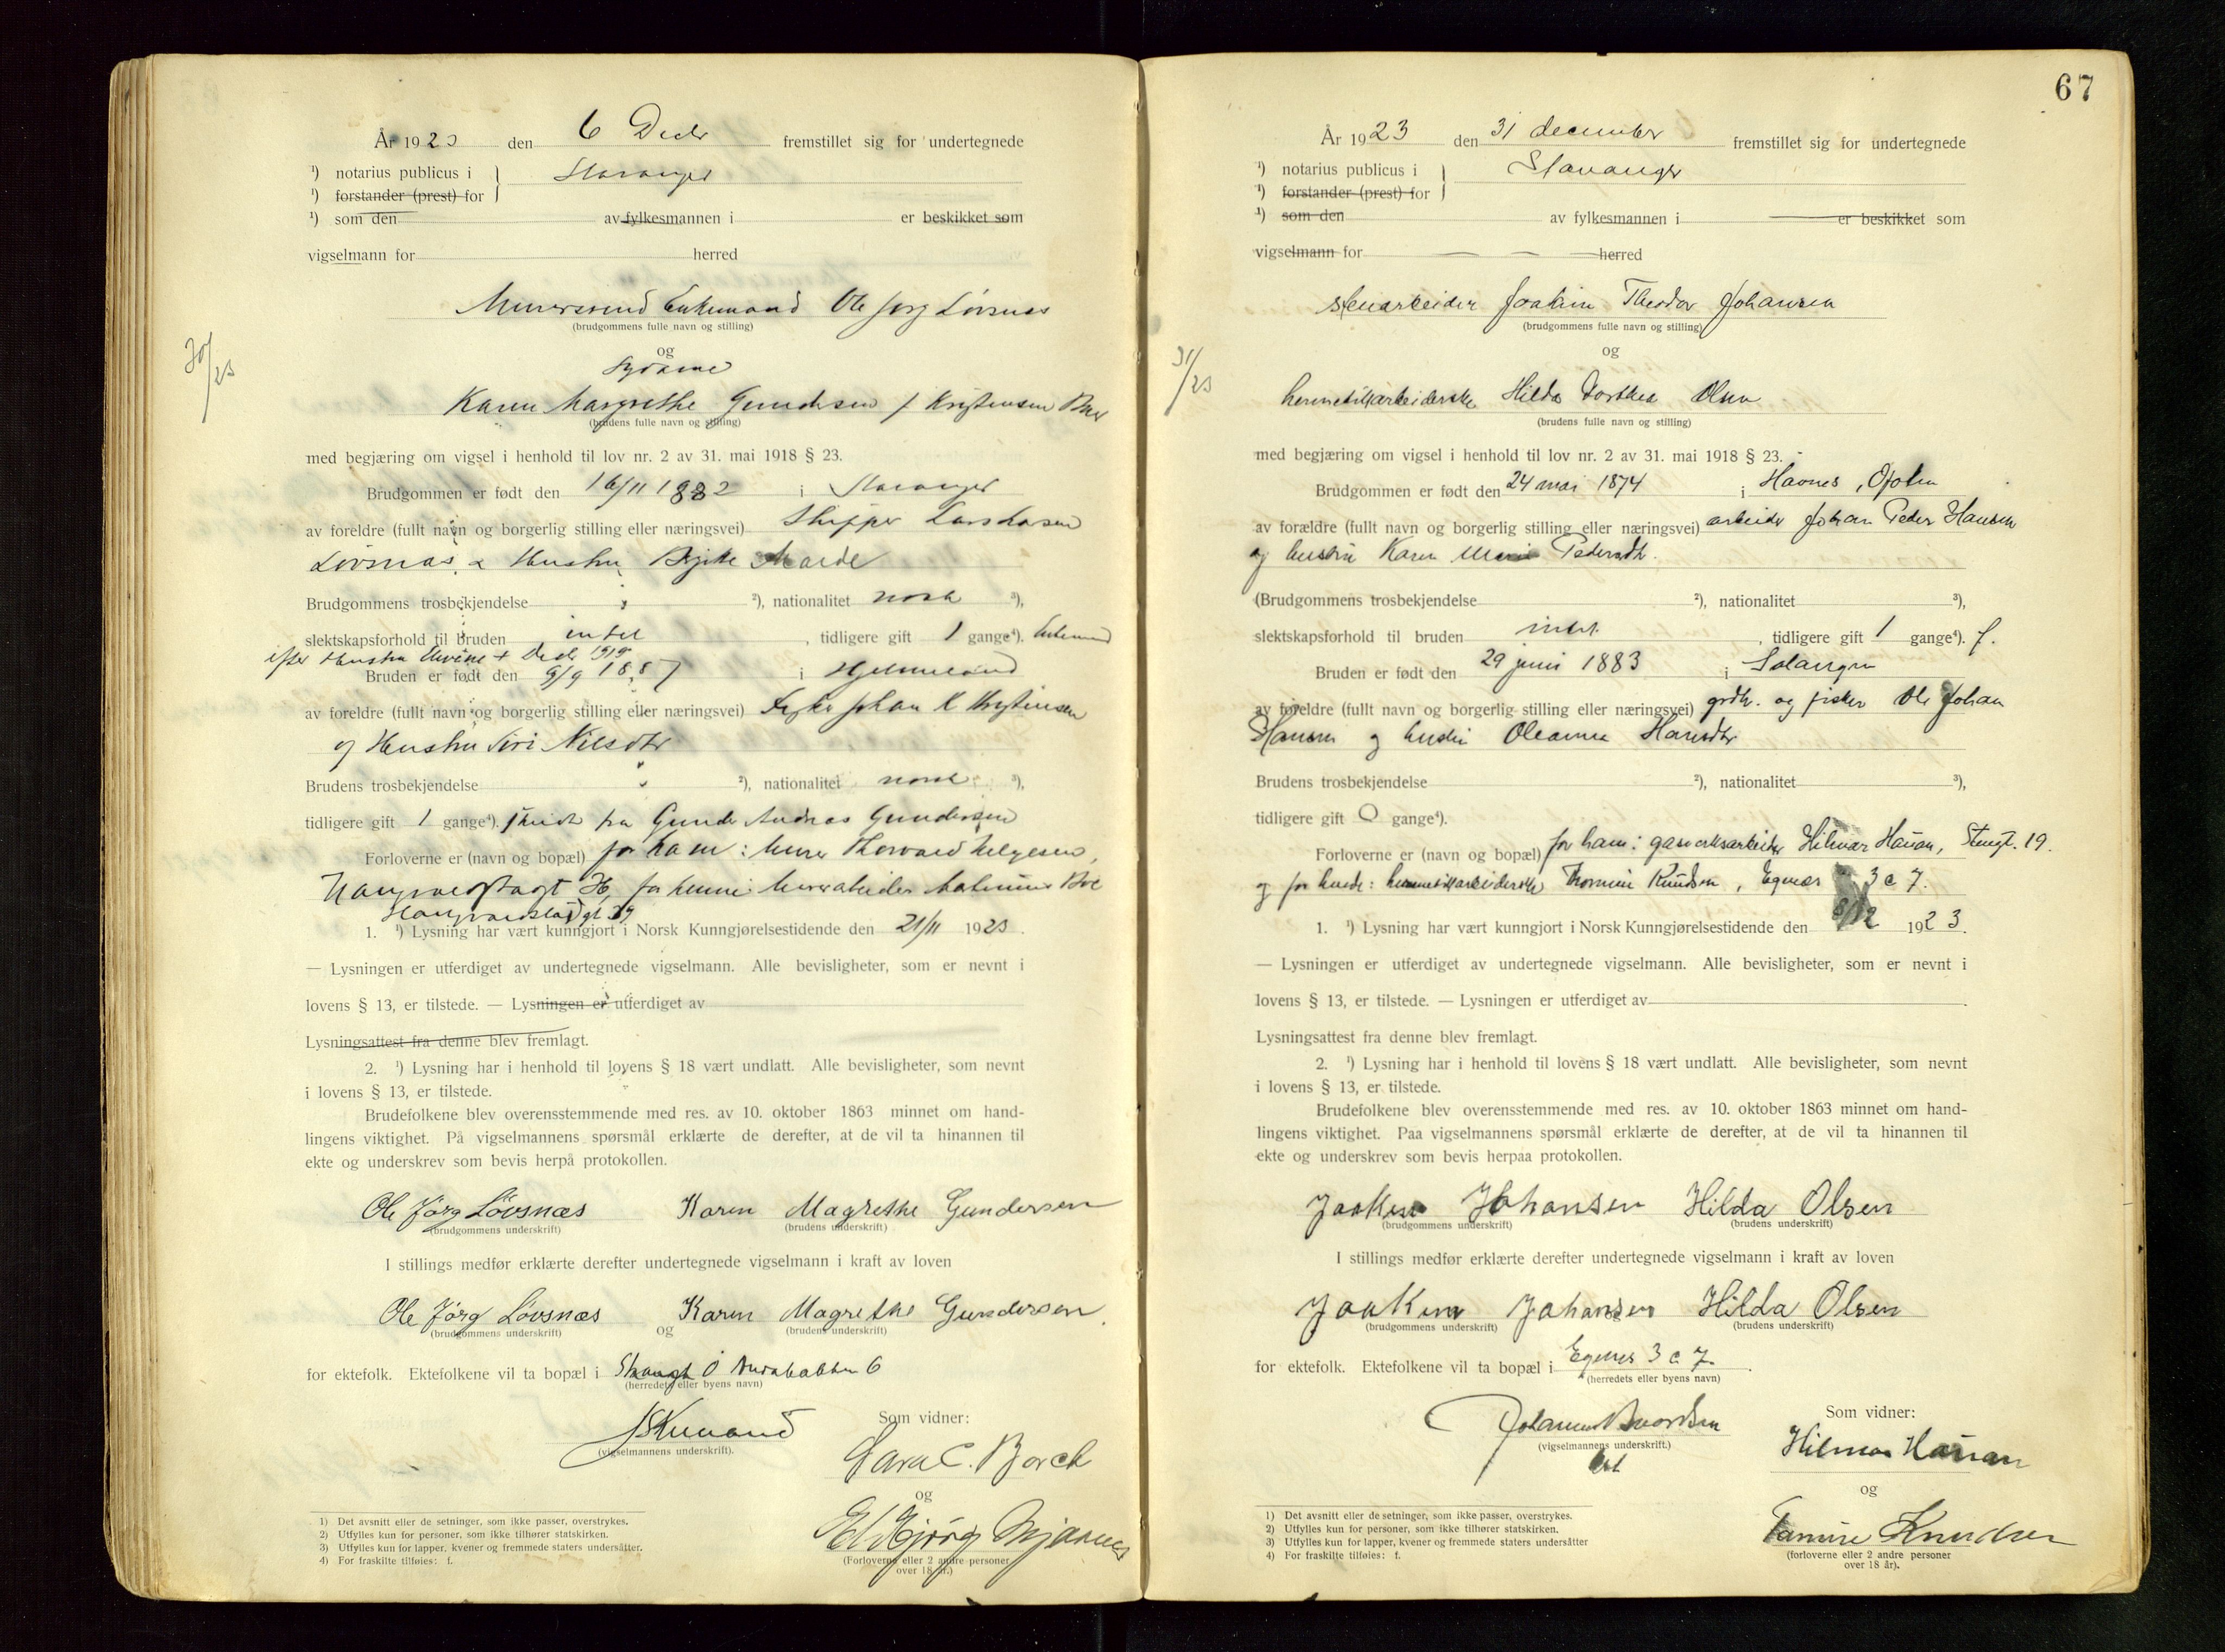 År 1923 den 6 Decbr fremstillet sig for undertegnede
¹) notarius publicus i Stavanger
¹) forstander (prest) for
¹) som den av fylkesmannen i er beskikket som
vigselmann for herred
Murersvend Enkemand Ole Jørg Løvsnæs
(brudgommens fulle navn og stilling)
og
30/23
Syerske
Karen Margrethe Gundersen f. Kristensen
(brudens fulle navn og stilling)
med begjæring om vigsel i henhold til lov nr. 2 av 31. mai 1918 § 23.
Brudgommen er født den 16/11 1882 i Stavanger
av foreldre (fullt navn og borgerlig stilling eller næringsvei) Skipper Lars Larsen
Løvsnæs & Hustru
Brudgommens trosbekjendelse ²), nationalitet norsk ³),
slektskapsforhold til bruden intet, tidligere gift 1 gange⁴). Enkemand
efter Hustru + Decbr 1919
Bruden er født den 9/9 1887 i Hjelmeland
av foreldre (fullt navn og borgerlig stilling eller næringsvei) Johan K Kristensen
og Hustru Siri Nilsdtr
Brudens trosbekjendelse ²), nationalitet norsk ³),
tidligere gift 1 gange⁴). skildt fra Gunder Andreas Gundersen
Forloverne er (navn og bopæl) for ham: murer Thorvald Helgesen,
for henne: murarbeider
1. ¹) Lysning har vært kunngjort i Norsk Kunngjørelsestidende den 21/11 1923.
— Lysningen er utferdiget av undertegnede vigselmann. Alle bevisligheter, som er nevnt i
lovens § 13, er tilstede. — Lysningen er utferdiget av
Lysningsattest fra denne blev fremlagt.
2. ¹) Lysning har i henhold til lovens § 18 vært undlatt. Alle bevisligheter, som nevnt
i lovens § 13, er tilstede.
Brudefolkene blev overensstemmende med res. av 10. oktober 1863 minnet om hand-
lingens viktighet. På vigselmannens spørsmål erklærte de derefter, at de vil ta hinannen til
ekte og underskrev som bevis herpå protokollen.
Ole Jørg Lövsnæs Karen Magrethe Gundersen
(brudgommens underskrift) (brudens underskrift)
I stillings medfør erklærte derefter undertegnede vigselmann i kraft av loven
Ole Jörg Lövsnæs og Karen Magrethe Gundersen.
(brudgommens underskrift) (brudens underskrift)
for ektefolk. Ektefolkene vil ta bopæl i 6
(herredets eller byens navn)
(vigselmannens underskrift).
Som vidner:
Sara C. Borch
og
(Forloverne eller 2 andre personer
over 18 år.)
1) Det avsnitt eller de setninger, som ikke passer, overstrykes.
2) Utfylles kun for personer, som ikke tilhører statskirken.
3) Utfylles kun for lapper, kvener og fremmede staters undersåtter.
4) For fraskilte tilføies: f.
67
År 1923 den 31 december fremstillet sig for undertegnede
¹) notarius publicus i Stavanger
¹) forstander (prest) for
¹) som den av fylkesmannen i er beskikket som
vigselmann for herred
stenarbeider Joakim Theodor Johansen
(brudgommens fulle navn og stilling)
og
31/23
hermetikarbeiderske Hilda Dorthea Olsen
(brudens fulle navn og stilling)
med begjæring om vigsel i henhold til lov nr. 2 av 31. mai 1918 § 23.
Brudgommen er født den 24 mai 1874 i Havnes,
av forældre (fullt navn og borgerlig stilling eller næringsvei) arbeider Johan Peder Hansen
og hustru Karen Marie Pedersdtr.
(Brudgommens trosbekjendelse ²), nationalitet ³),
slektskapsforhold til bruden intet, tidligere gift 1 gange⁴). f.
Bruden er født den 29 juni 1883 i Salangen
av foreldre (fullt navn og borgerlig stilling eller næringsvei) grdbr. og fisker Ole Johan
Hansen og hustru Oleanna Hansdtr
Brudens trosbekjendelse ²), nationalitet ³),
tidligere gift 0 gange⁴).
Forloverne er (navn og bopæl) for ham: gasverksarbeider Hilmar Hauan, Stengt. 19.
og for brude: hermetikarbeiderske Tomine Knudsen, Egenes 3 c 7.
1. ¹) Lysning har vært kunngjort i Norsk Kunngjørelsestidende den 8/12 1923.
— Lysningen er utferdiget av undertegnede vigselmann. Alle bevisligheter, som er nevnt i
lovens § 13, er tilstede. — Lysningen er utferdiget av
Lysningsattest fra denne blev fremlagt.
2. ¹) Lysning har i henhold til lovens § 18 vært undlatt. Alle bevisligheter, som nevnt
i lovens § 13, er tilstede.
Brudefolkene blev overensstemmende med res. av 10. oktober 1863 minnet om hand-
lingens viktighet. Paa vigselmannens spørsmål erklærte de derefter, at de vil ta hinannen til
ekte og underskrev som bevis herpaa protokollen.
Joakim Johansen Hilda Olsen
(brudgommens underskrift) (brudens underskrift)
I stillings medfør erklærte derefter undertegnede vigselmann i kraft av loven
Joakim Johansen Hilda Olsen
(brudgommens underskrift) og (brudens underskrift)
for ektefolk. Ektefolkene vil ta bopæl i Egenes 3 c 7.
(herredets eller byens navn)
(vigselmannens underskrift.)
Som vidner:
Hilmar Hauan
og
Tomine Knudsen
(forloverne eller 2 andre personer
over 18 år).
1) Det avsnitt eller de setninger, som ikke passer, overstrykes.
2) Utfylles kun for personer, som ikke tilhører statskirken.
3) Utfylles kun for lapper, kvener og fremmede staters undersåtter
4) For fraskilte tilføies: f.